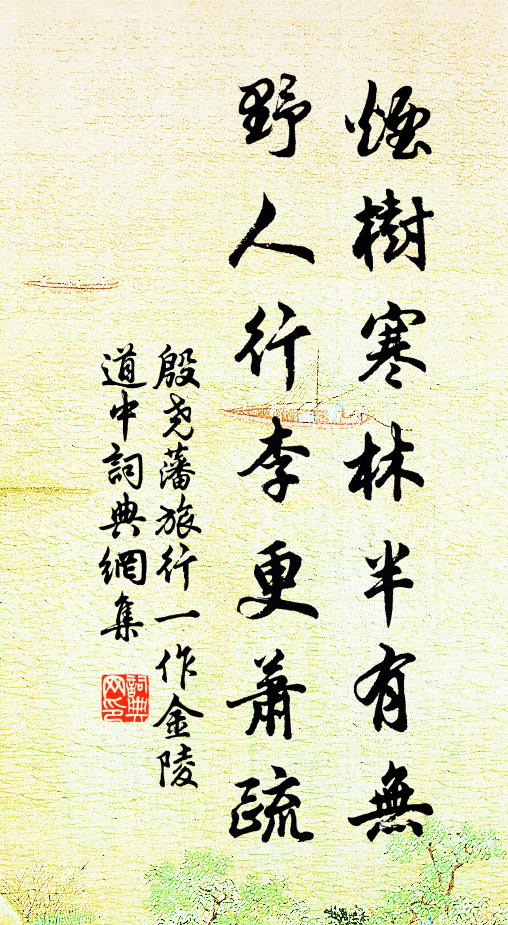 煙樹寒林半有無
野人行李更蕭疏
殷尧藩旅行一作金陵
道中詞典網集
詞典
网印